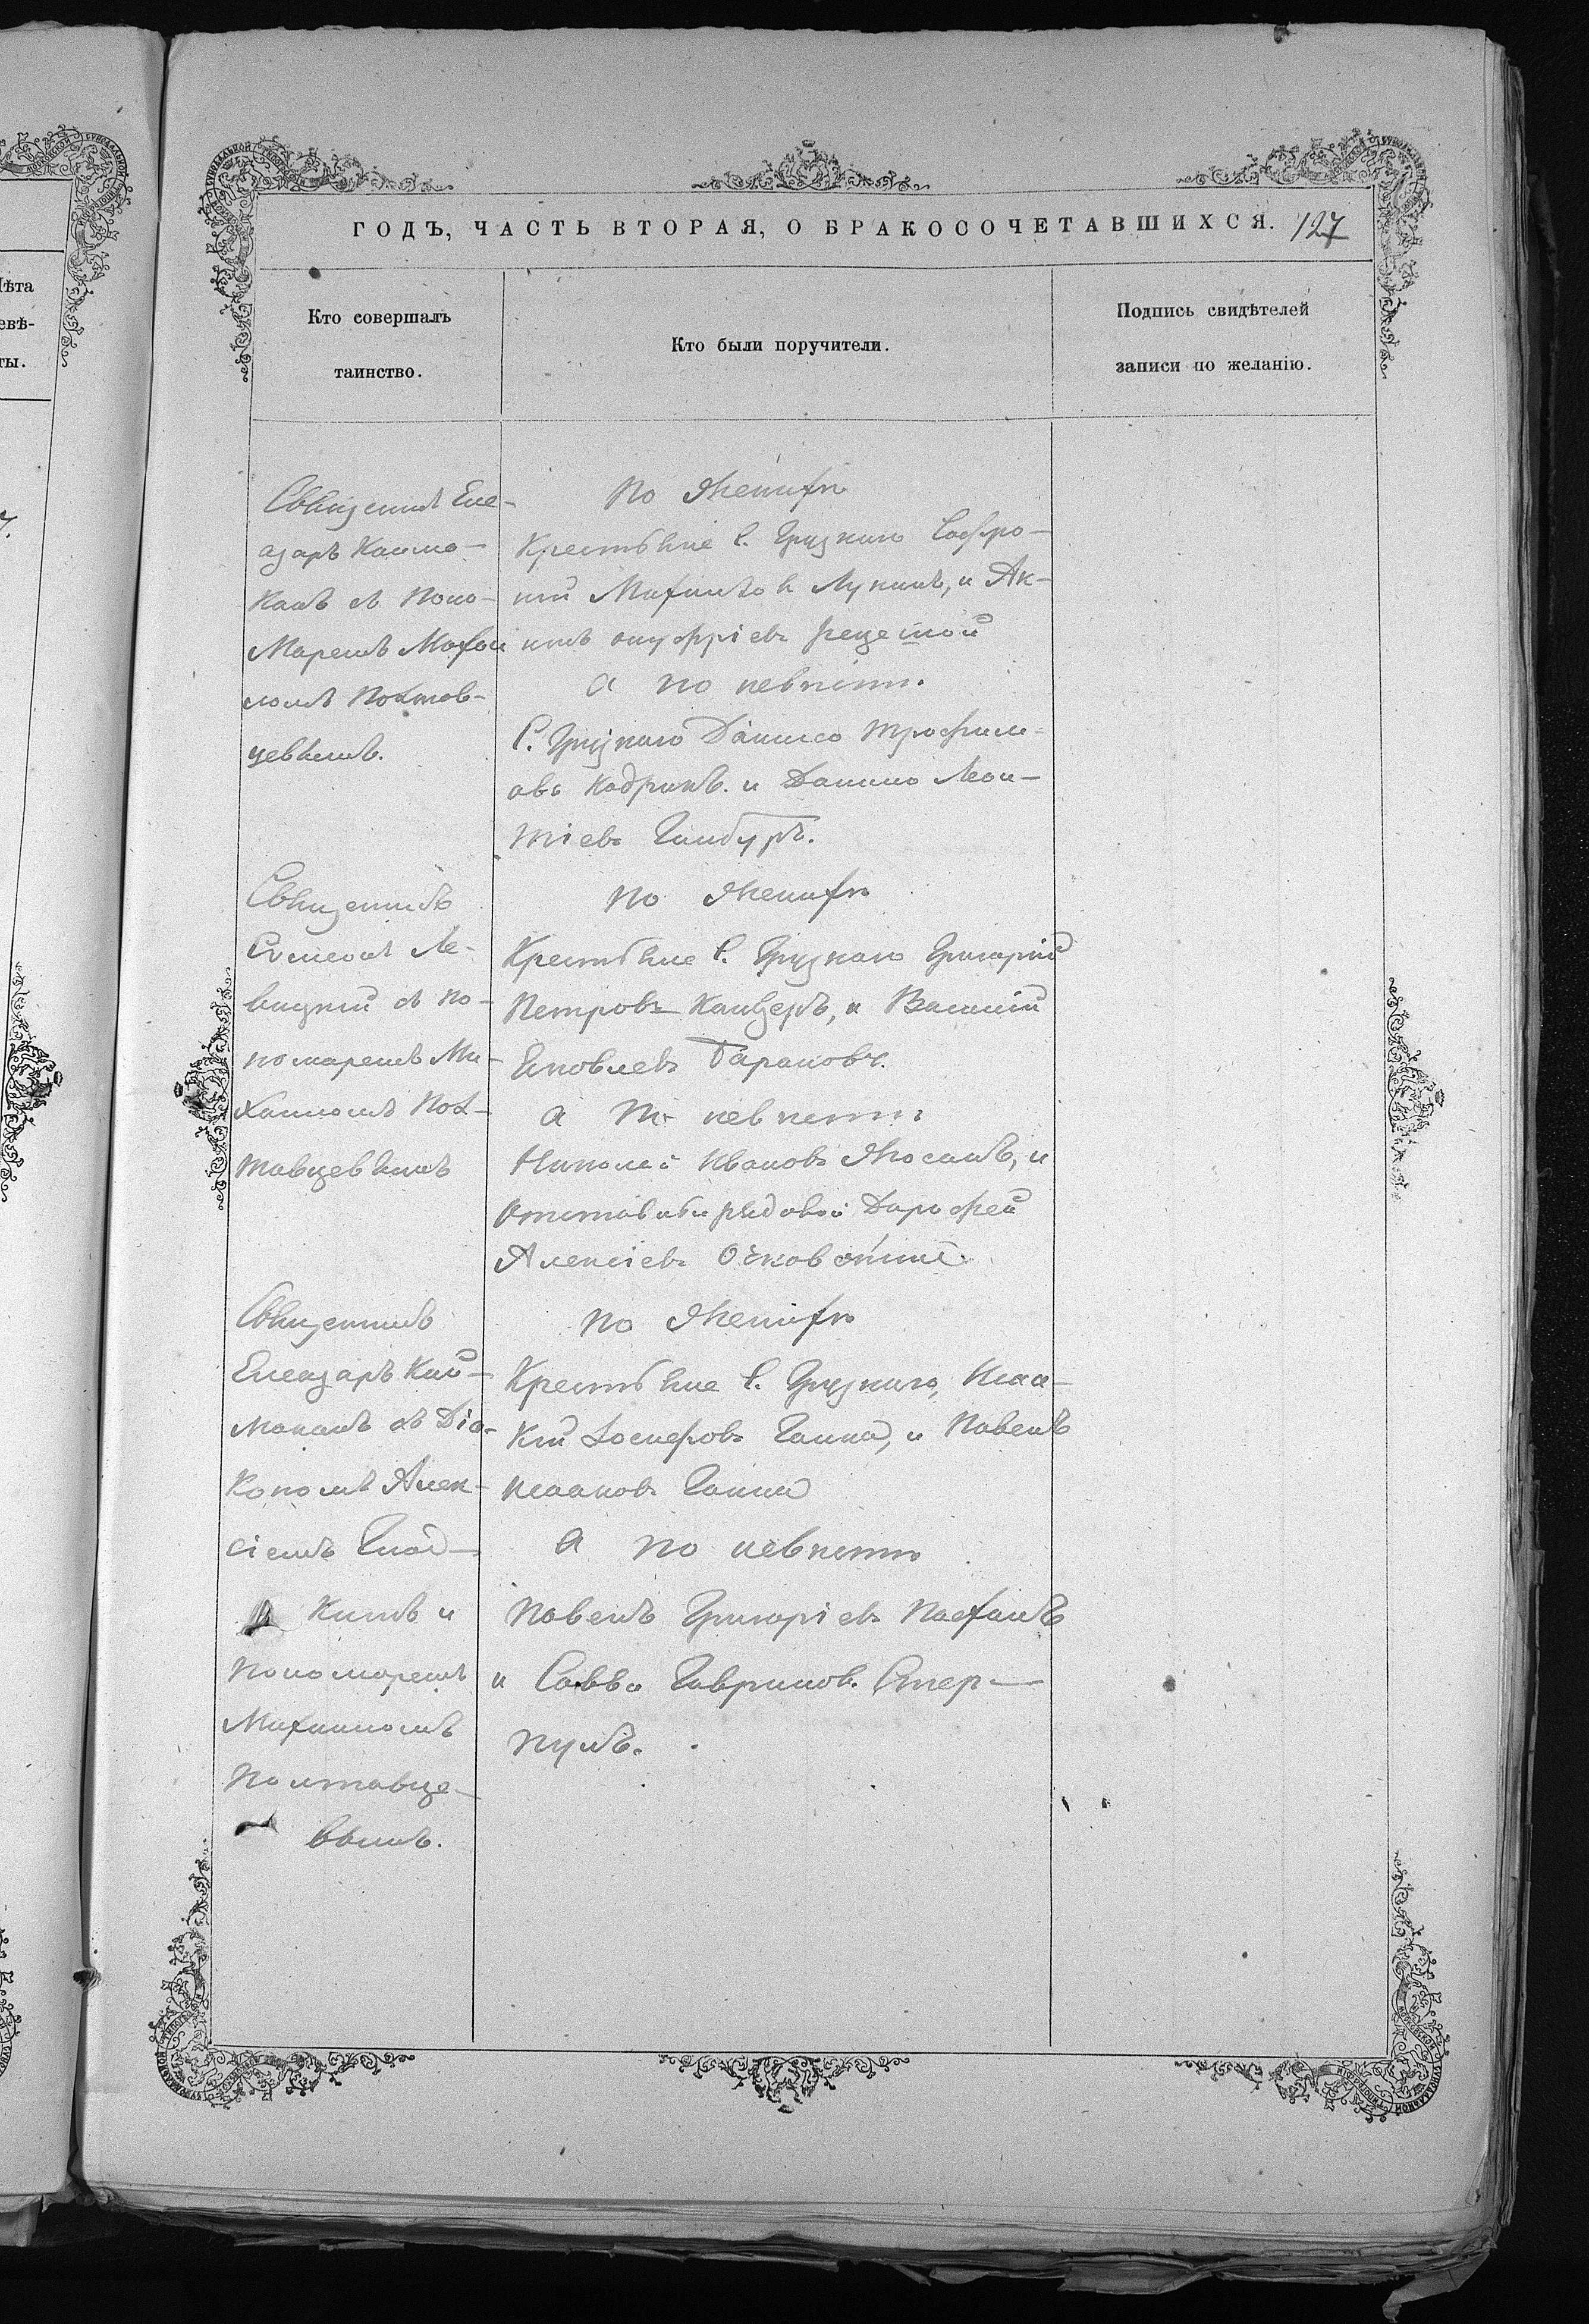 ГОДЪ, ЧАСТЬ ВТОРАЯ, О БРАКОСОЧЕТАВШИХСЯ. 127
Кто совершалъ
таинство.
Кто были поручители.
Подпись свидѣтелей
записи по желанію.
Лѣта
Священникъ Еле-
азаръ Кайма-
канъ съ Поно-
маремъ Михаи
ломъ Полтав-
цевымъ.
По женихѣ
Крестьяне С. Грузкаго Софро-
ній Михайловъ Лупанъ, и Ак-
имъ Онуфріевъ
а по невѣстѣ.
С. Грузкаго Данило Трофим-
овъ Кодрянъ. и Данило Леон-
тіевъ Гимбуръ.
Священникъ
Симеонъ Ле-
вицкій съ По-
номаремъ Ми-
хаиломъ Пол-
тавцевымъ
По женихѣ
Крестьяне С. Грузкаго Григорій
Петровъ Канцеръ, и Василій
Яковлевъ Барановъ.
а по невѣстѣ
Николай Ивановъ Жосанъ, и
отставный рядовой Дорофей
Алексіевъ
Священникъ
Елеазаръ Кай-
маканъ съ Діа-
кономъ Алек-
сіемъ Глад-
кимъ и
Пономаремъ
Михаиломъ
Полтавце-
вымъ.
По женихѣ
Крестьяне С. Грузкаго, Исаа-
кій Іосифовъ Ганна, и Павелъ
Исааковъ Ганна
а по невѣстѣ
Павелъ Григоріевъ
и Савва Гавриловъ Стер-
пулъ.